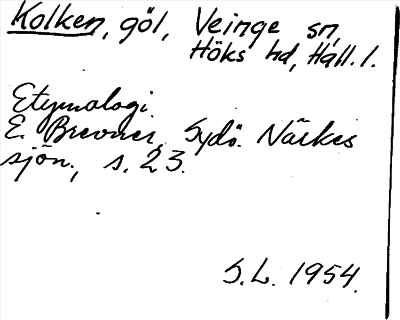 Kolken, göl, Veinge sn,
Höks hd, Hall. l.
Etymologi.
E. Brevner, Sydö. Närkes
sjön., s. 23.
S.L. 1954.